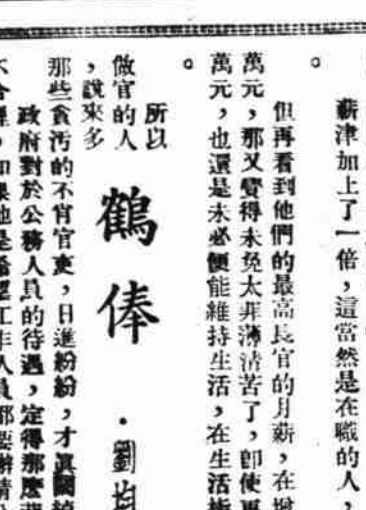 薪津加上了一倍，這當然是在職的人，
。
但再看到他們的最高長官的月薪，在
萬元，那又覺得未免太菲薄清苦了，即使再
萬元，也還是未必便能維持生活，在生活
。
鶴俸
・劉均
所以
做官的人
，說來多
那些貪污的不肖官吏，日進紛紛，才真闊
政府對於公務人員的待遇，定得那麼
如果他是希望工作人員都要